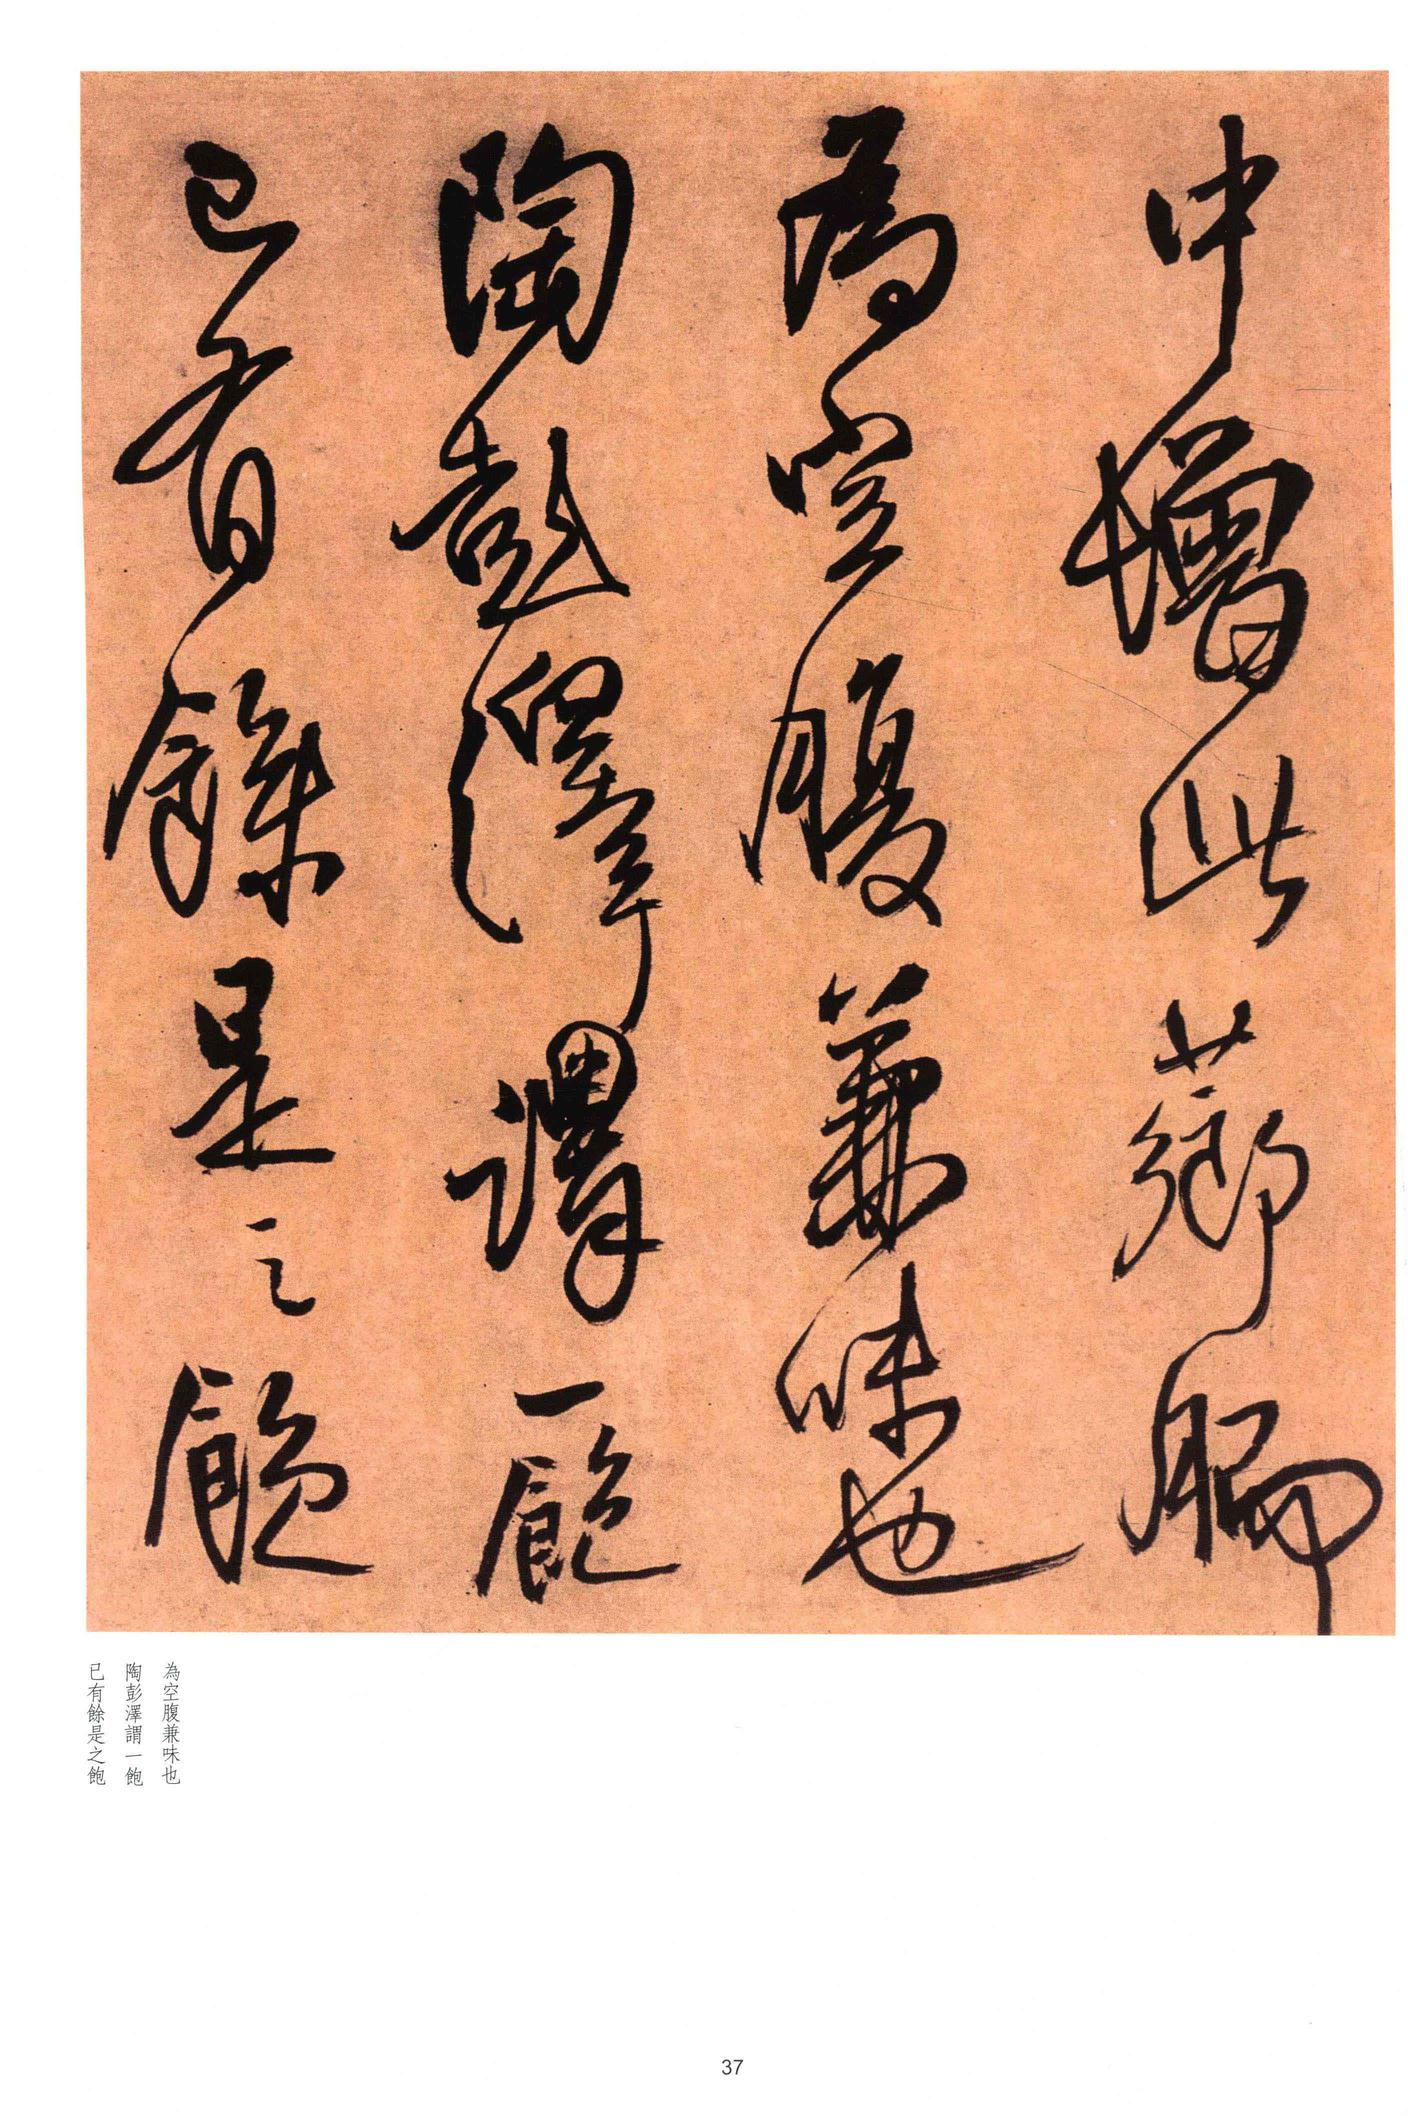 中增此薌膈
為空腹兼味也
陶彭澤謂一飽
已有餘是之飽
為空腹兼味也
陶彭澤謂一飽
已有餘是之飽
37